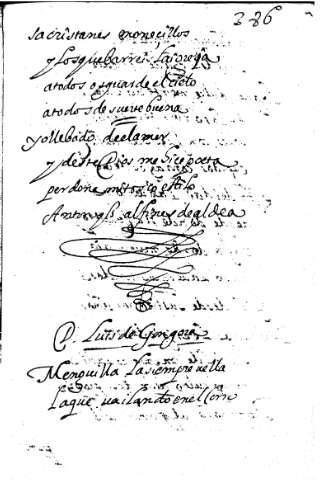 286
sacristanes monecillos
y los que barreis la iglesia
a todos os guarde el cielo
a todos de suerte buena
yo llebado de el amor
y de este Dios me hice poeta
perdone mi tosco estilo
al fin es de aldea
D. Luis de Gongora
Menguilla la siempre vella
la que vailando en el corro